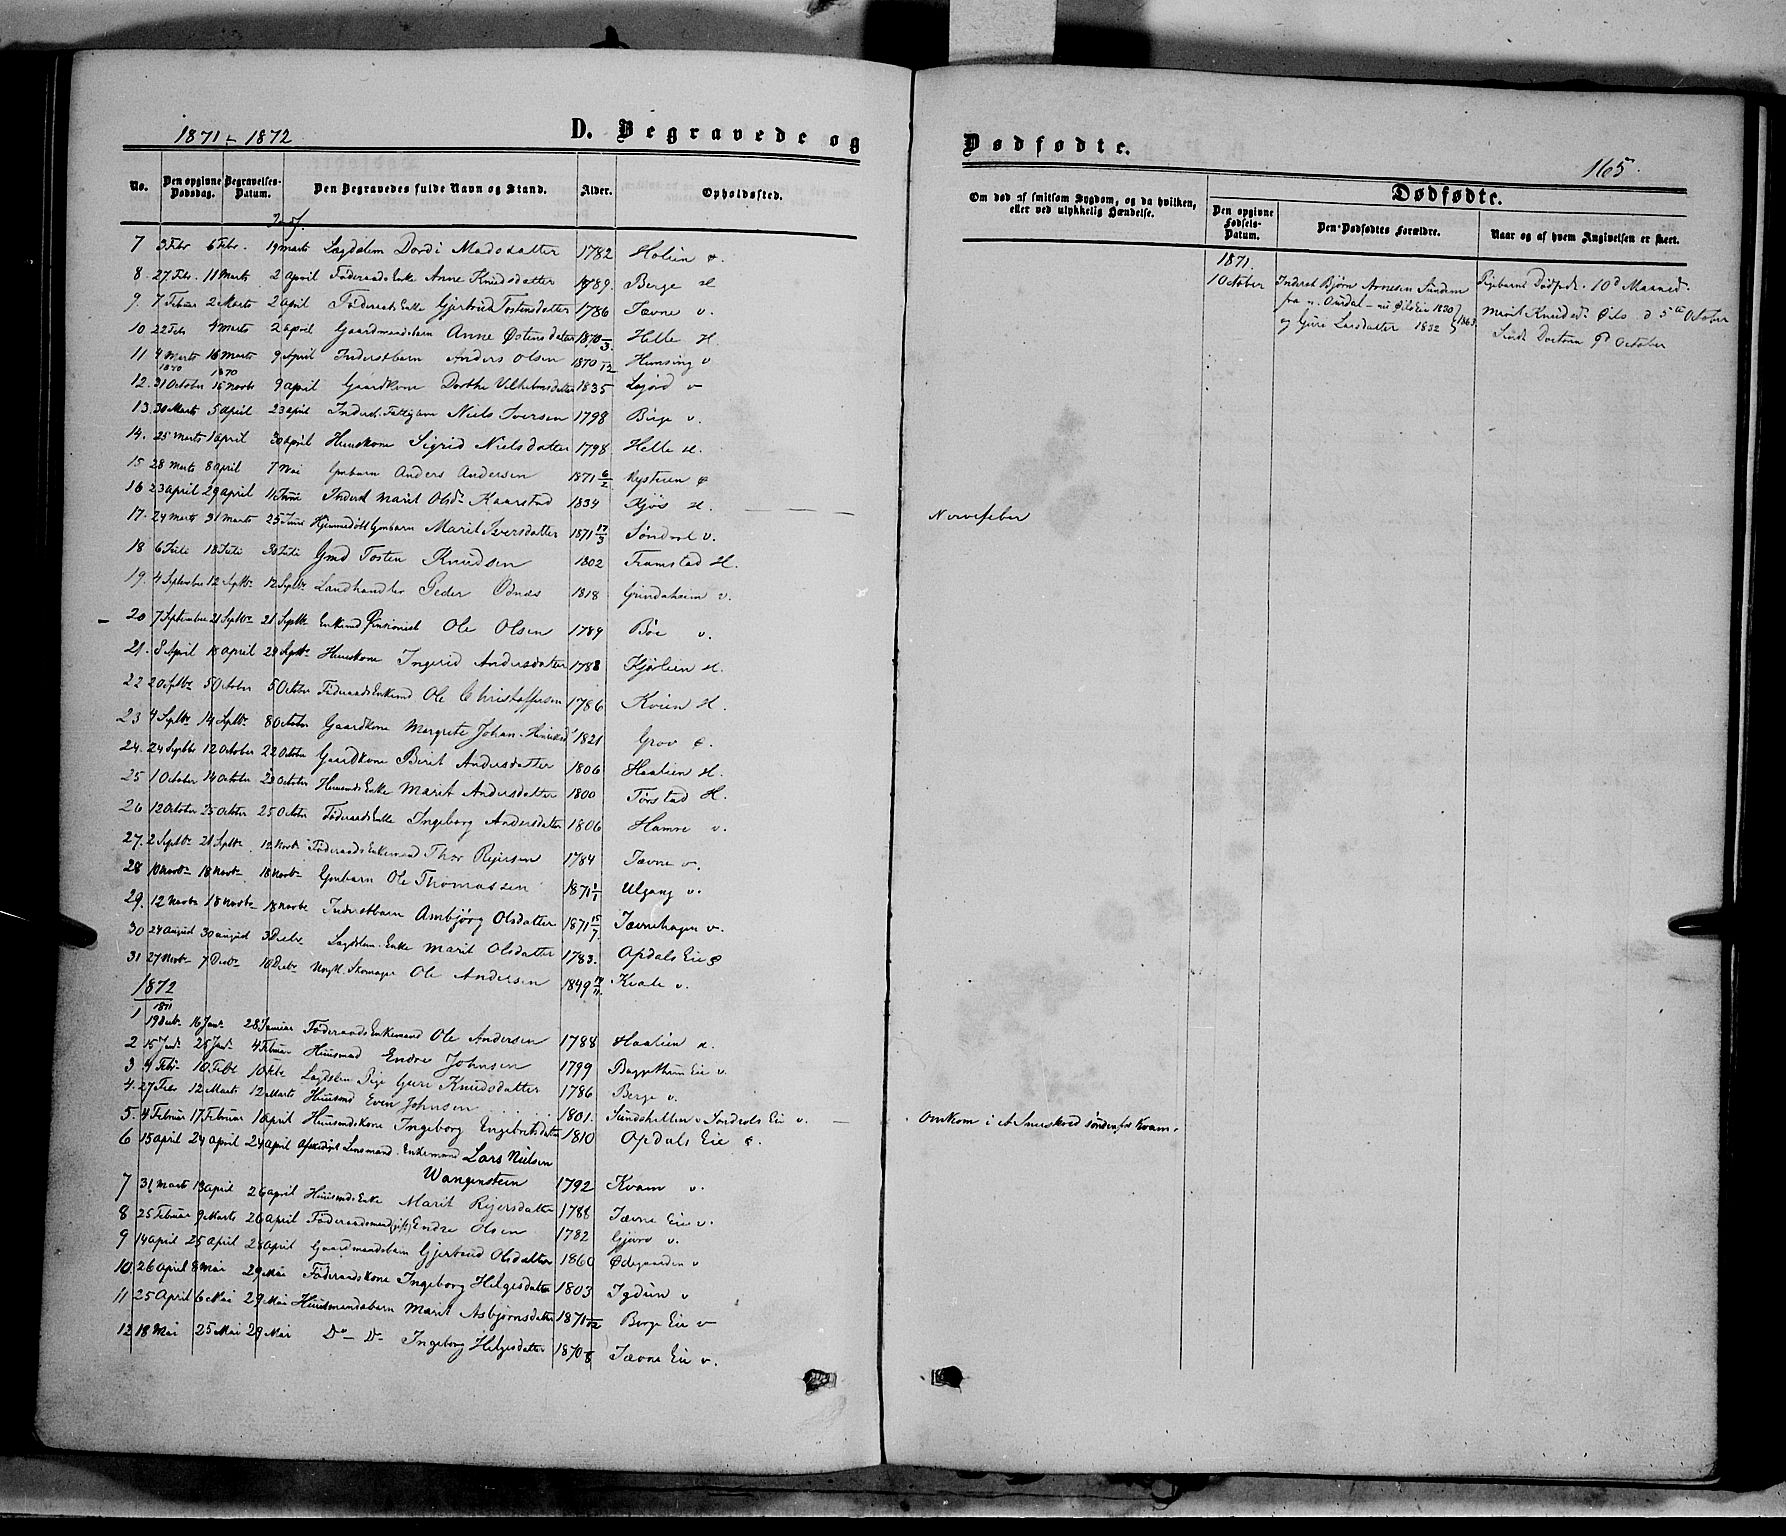 1871 - 1872
D. Begravede og
No.
Den opgivne Dødsdag.
Begravelses-Datum.
Den Begravedes fulde Navn og Stand.
Alder.
Opholdssted.
7 3 Febr 6 Febr. 19 Marts Lægdslem Dordi Madsdatter 1782 Hølien
8. 27 Febr. 11 Marts 2 April Føderaads Enke Anne Knudsdatter 1789. Berge H
9. 7 Februar 2 Marts 2 April Føderaads Enke Gjertrud Tostensdatter 1786 Jævne v.
10 22 Febr 4 Marts 2 April Gaardmandsbarn Anne Østensdatter 1870 Helle H.
11 4 Marts 16 Marts 9 April Inderstbarn Anders Olsen 1870 Hunsing v
1870 1870
12. 31 October 16 Novbr 9 April Gaardkone Dorthe Vilhelmsdatter 1835 v
13. 30 Marts 5 April 23 April Inderst. Fattiglem Niels Iversen 1798 Berge v.
14. 25 Marts 1 April 30 April Huuskone Sigrid Nielsdatter 1798 Helle H.
15 28 Marts 8 April 7 Mai Gmbarn Anders Andersen 1871 6/2
16 23 April 29 April 11 Juni Inderst Marit Olsdr Kaarstad 1834 H.
17. 24 Marts 31 Marts 25 Juni Hjemmedøbt Gmbarn Marit Iversdatter 1871 17/3 Søndrol v.
18 6 Juli 18 Juli 30 Juli Gmd Tosten Knudsen 1802 Framstad H.
19. 4 September 12 Septbr 12 Septbr Landhandler Peder Ødnæs 1818 Grindaheim v.
20 7 September 21 Septbr 21 Septbr Enkemd Pensionist Ole Olsen 1789 Bøe v.
21. 8 April 18 April 29 Septbr Huuskone Ingerid Andersdatter 1788 Kjølien H.
22 20 Septbr 5 October 5 October Føderaads Enkemd Ole Christoffersen 1786 Kvien H.
23 4 Septbr 14 Septbr 8 October Gaardkone Margrete Johan 1821 Grov
24. 24 Septbr 12 October 22 October Gaardkone Berit Andersdatter 1806 Haalien H.
25 1 October 14 October 23 October Huusmds Enke Marit Andersdatter 1800 Tørstad H.
26 12 October 25 October 25 October Føderaads Enke Ingeborg Andersdatter 1806 Hamre v.
27. 2 Septbr 21 Septbr 12 Novbr Føderaads Enkemand Thor Rejersen 1784 Jævne v.
28 10 Novbr 18 Novbr 18 Novbr Gmbarn Ole Thomassen 1871 1/1 Ulgang v.
29. 12 Novbr 18 Novbr 18 Novbr Inderstbarn Ambjørg Olsdatter 1871 15/7 Jævnehagen v.
30 24 August 30 August 3 Decbr Lægdslem. Enke Marit Olsdatter 1783. Opdals Eie
31 27 Novbr 7 Decbr 10 Decbr Ungkl. Skomager Ole Andersen 1849 Kvale v.
1872
1871
1 19 Decbr 16 Janr 28 Januar Føderaads Enkemand Ole Andersen 1788 Haalien H.
2 15 Janr 25 Janr 4 Februar Huusmand Endre Johnsen 1799 Baggethun Eie v.
3 4 Febr. 10 Febr Lægdslem Pige Guri Knudsdatter 1786 Berge v.
4. 27 Febr 12 Marts 12 Marts Huusmd Even Johnsen 1801. Sundshellen Søndrols Eie v. —
5. 4 Februar 17 Februar 18 April Huusmdskone Ingeborg Engebretsdatter 1810 Opdals Eie
6 15 April 24 April 24 April Afskediget Lensmand. Enkemand Lars Nielsen
Wangensteen 1792 Kvam v.
7 31 Marts 13 April 26 April Huusmds Enke Marit Rejersdatter 1788 Jævne Eie v.
8 25 Februar 9 Marts 26 April Føderaadsmand (gift) Endre Olsen 1782 v.
9 14 April 25 April 28 April Gaardmandsbarn Gjertrud Olsdatter 1860 Ødegaarden v
10. 26 April 8 Mai 29 Mai Føderaadskone Ingeborg Helgesdatter 1803 Igdun v
11 25 April 6 Mai 29 Mai Huusmandsbarn Marit Asbjørnsdatter 1871 Berge Eie v
12 18 Mai 25 Mai 29 Mai Do — Do Ingeborg Helgesdatter 1870 Jævne Eie v.
Dødfødte.
165.
Om død af smitsom Sygdom, og da hvilken, eller ved ulykkelig Hændelse.
Dødfødte.
Den opgivne Fødsels-Datum.
Den Dødfødtes Forældre.
Naar og af hvem Angivelsen er skeet.
1871.
10 October Inderst Bjørn Arnesen Sundem
fra n. Aurdal - nu Øils Eie 1830
og Guri Larsdatter 1832 1863.
Pigebarns Dødfødt. 10d Maaned.
Marit Knudsd. Øils d 5te October
October
Nervefeber
Omkom i et Sneeskred søndenfor Kvam.